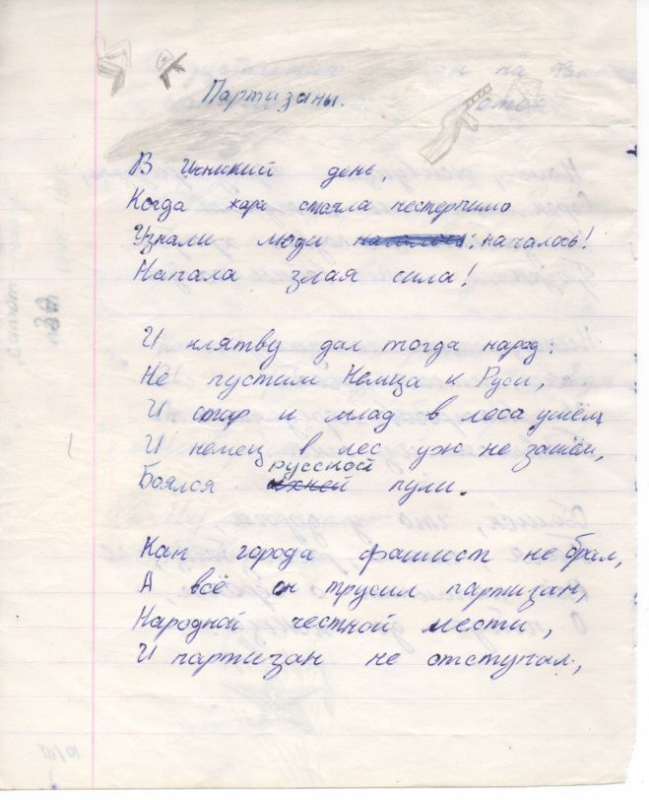 Партизаны.
В Июньский день,
Когда жара стояла нестерпимо
Узнали люди : началось!
Напала злая сила!
И клятву дал тогда народ:
Не пустим Немца к Руси,
И стар и млад в леса ушёл
И немец в лес уж не зашёл,
Боялся русской пули.
Как города фашист не брал,
А всё он трусил партизан,
Народной честной мести,
И партизан не отступал,